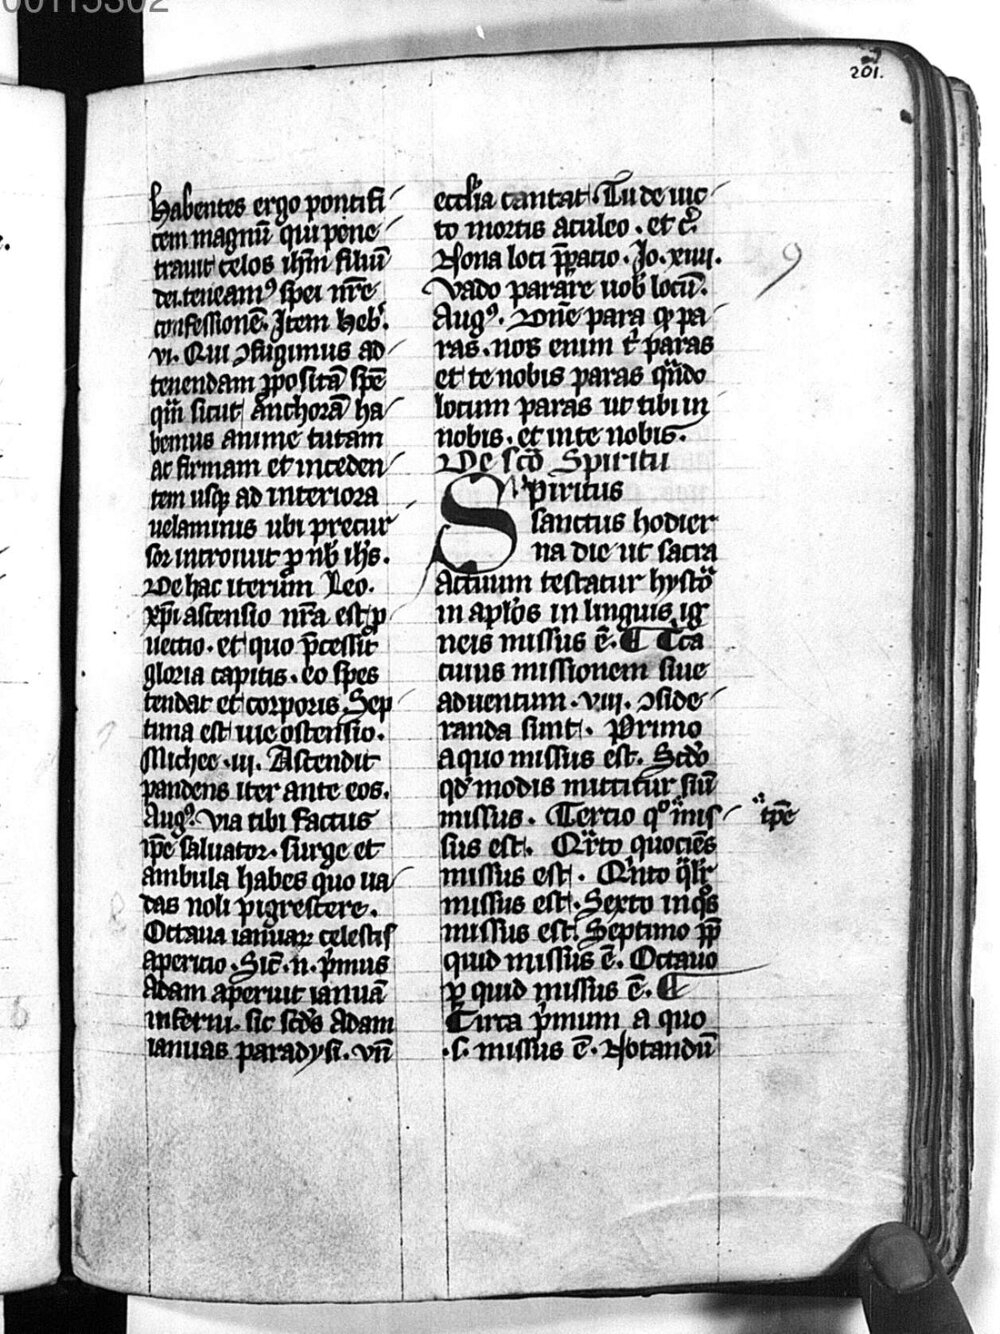 00115302
201.
habentes ergo pontifi
cem magnū qui pene
trauit celos ihm̄ filiū
dei. teneamꝰ spei nr̄e
confessionē. Item heb̄.
vi. Qui ꝯfugimus ad
tenendam ꝓpositā spē
qm̄ sicut anchorā ha
bemus anime tutam
ac firmam et inceden
tem usqꝫ ad interiora
uelaminis ubi precur
sor introiuit ꝓ nob̄ ihs̄.
De hac iterum Leo.
xp̄i ascensio nr̄a est ꝓ
uectio. et quo p̄cessit
gloria capitis. eo spes
tendat et corporis. Sep
tima est uie ostensio.
Michee .ii. Ascendit
pandens iter ante eos.
Augꝰ. via tibi factus
ip̄e saluator. surge et
ambula habes quo ua
das noli pigrescere.
Octaua ianuaꝝ celestis
apericio. Sic̄ .n. p̄mus
Adam aperuit ianuā
inferni. sic scd̄s Adam
ianuas paradysi. vn̄
eccl̄ia cantat. Tu de uic
to mortis aculeo. et c̄.
Nona loci p̄paratio. Jo. xiiii.
Vado parare uob̄ locū.
Augꝰ. Dn̄e para qꝫ pa
ras. nos enim t̄ paras
et te nobis paras qn̄do
locum paras ut tibi in
nobis. et in te nobis.
De sc̄o Spiritu
Spiritus
sanctus hodier
na die ut sacra
Actuum testatur hystō
in apl̄os in linguis ig
neis missus ē. ¶ Cͥca
cuius missionem siue
aduentum .viii. ꝯside
randa sunt. Primo
a quo missus est. Scd̄o
qd̓ modis mittitur siū
missus. Tercio qͦ mis
tp̄e
sus est. Qͣrto quociēs
missus est. Qͥnto qͣlr̄
missus est. Sexto in qͦs
missus est. Septimo ꝓp̄
quid missus ē. Octauo
ꝓ quid missus ē. ¶
Circa p̄mum a quo
.s. missus ē. Notandū
9